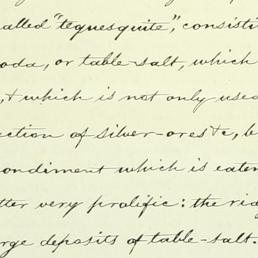 alled "tequesquite", consisti
oda, or table-salt, which
, & which is not only used
ction of silver-ores &c, b
ondiment which is eaten
tter very prolific: the rid
rge deposits of table-salt.